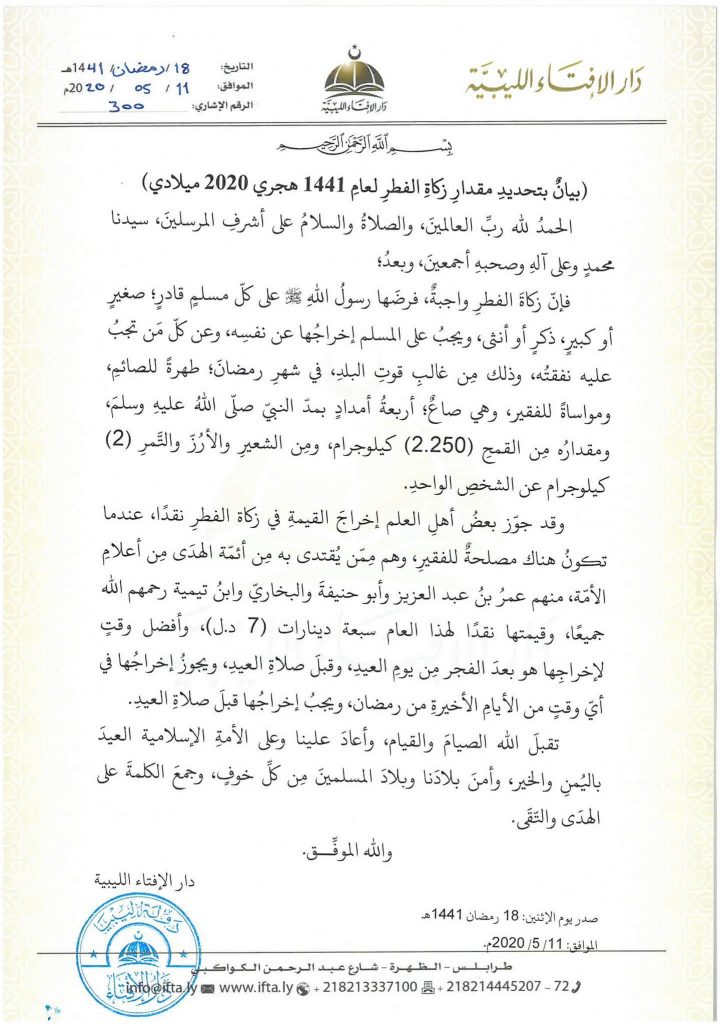 دَار الإفتَاء الليبيَّة
دَار الإفتَاء الليبيَّة
التاريخ: 18/رمضان/1441هـ
الموافق: 11 / 05 / 2020م
الرقم الإشاري: 300
بِسْمِ اللَّهِ الرَّحْمَنِ الرَّحِيمِ
(بيانٌ بتحديدِ مقدارِ زكاةِ الفطرِ لعامِ 1441 هجري 2020 ميلادي)
الحمدُ لله ربِّ العالمينَ، والصلاةُ والسلامُ على أشرفِ المرسلينَ، سيدنا
محمدٍ وعلى آلهِ وصحبهِ أجمعينَ، وبعدُ؛
فإنّ زكاةَ الفطرِ واجبةٌ، فرضَها رسولُ اللهِ ﷺ على كلّ مسلمٍ قادرٍ؛ صغيرٍ
أو كبيرٍ، ذكرٍ أو أنثى، ويجبُ على المسلم إخراجُها عن نفسِه، وعن كلّ مَن تجبُ
عليه نفقتُه، وذلك مِن غالبِ قوتِ البلدِ، في شهرِ رمضانَ؛ طهرةً للصائمِ،
ومواساةً للفقير، وهي صاعٌ؛ أربعةُ أمدادٍ بمدّ النبيّ صلّى اللهُ عليهِ وسلمَ،
ومقدارُه مِن القمحِ (2.250) كيلوجرام، ومِن الشعيرِ والأرُزّ والتَّمرِ (2)
كيلوجرام عن الشخصِ الواحدِ.
وقد جوّز بعضُ أهلِ العلم إخراجَ القيمةِ في زكاة الفطرِ نقدًا، عندما
تكونُ هناك مصلحةٌ للفقيرِ، وهم مِمّن يُقتدى به مِن أئمّة الهدَى مِن أعلامِ
الأمّة، منهم عمرُ بنُ عبد العزيز وأبو حنيفةَ والبخاريّ وابنُ تيمية رحمهم الله
جميعًا، وقيمتها نقدًا لهذا العام سبعة دينارات (7 د.ل)، وأفضل وقتٍ
لإخراجِها هو بعدَ الفجر مِن يومِ العيدِ، وقبلَ صلاةِ العيدِ، ويجوزُ إخراجُها في
أيّ وقتٍ من الأيامِ الأخيرةِ من رمضان، ويجبُ إخراجُها قبلَ صلاةِ العيدِ.
تقبلَ الله الصيامَ والقيام، وأعادَ علينا وعلى الأمةِ الإسلامية العيدَ
باليُمنِ والخير، وأمنَ بلادَنا وبلادَ المسلمينَ مِن كلِّ خوفٍ، وجمعَ الكلمةَ على
الهدَى والتّقَى.
والله الموفِّـــق.
دار الإفتاء الليبية
صدر يوم الإثنين: 18 رمضان 1441هـ
الموافق: 2020/5/11م.
دولة ليبيا
دار الإفتاء
طرابلس - الظهرة - شارع عبد الرحمن الكواكبي
info@ifta.ly www.ifta.ly + 218213337100 + 218214445207 - 72